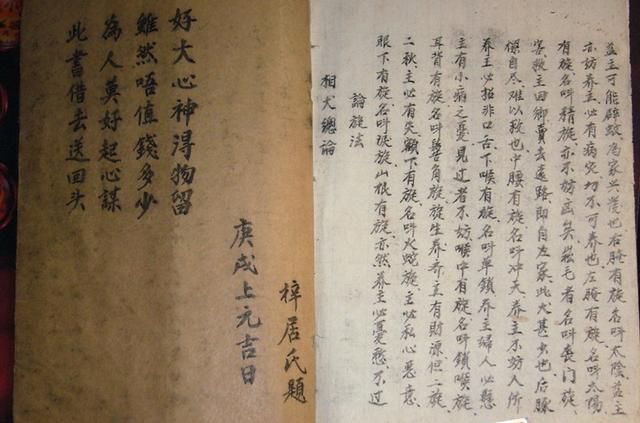 此書借去送回头
為人莫好起心謀
雖然唔值錢多少
好大心神得物留
庚戌上元吉日
梓居氏題
相犬總論
論旋法
眼下有旋名叫淚旋山根有旋亦然养主必憂愁不过
二秋主必有灾額下有旋名叫火蛇旋主必私心恶意
耳背有旋名叫角旋旋生养亦主有財源但二旋
主有小病之憂見过者不妨喉中有旋名叫鎖喉旋
养主必招非口舌下喉有旋名叫單鎖养主婦人必懸
傑自尽难以救也中腰有旋名叫冲天养主不妨人所
客救主回鄉賣去遠路即自在家此犬甚虫也后豚
有旋名叫精旋亦不妨毛者名叫喪門旋
亦妨养主必有病灾切不可养也左腌有旋名叫太陽
益主可能辟為家兴後也右腌有旋名叫太陰益主